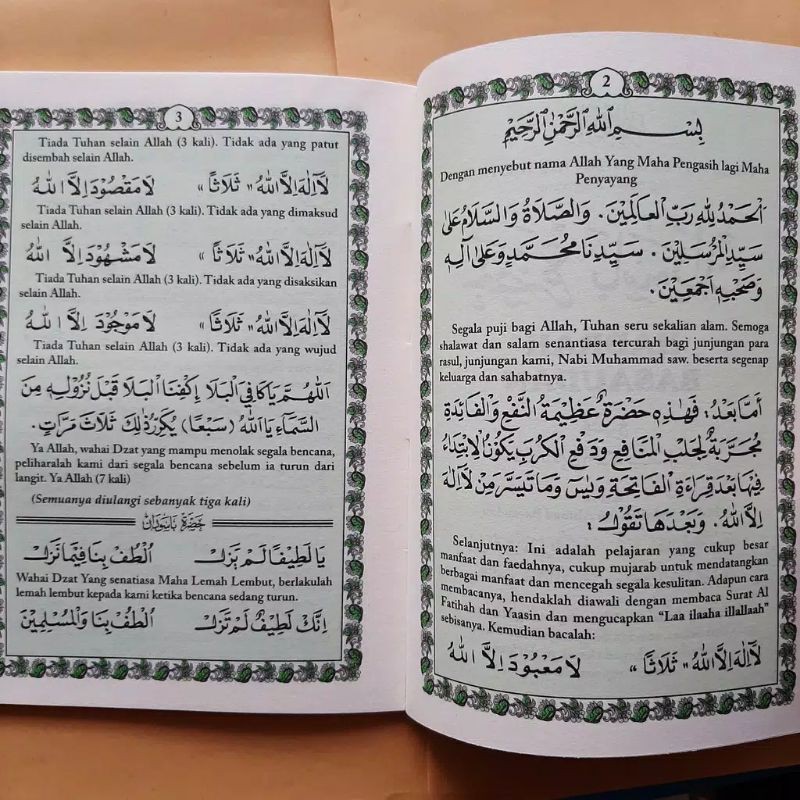 2
بِسْمِ اللهِ الرَّحْمٰنِ الرَّحِيْمِ
Dengan menyebut nama Allah Yang Maha Pengasih lagi Maha
Penyayang
اَلْحَمْدُ لِلّٰهِ رَبِّ الْعَالَمِيْنَ . وَالصَّلَاةُ وَالسَّلَامُ عَلٰى
سَيِّدِ الْمُرْسَلِيْنَ . سَيِّدِنَا مُحَمَّدٍ وَعَلٰى آلِهِ
وَصَحْبِهِ اَجْمَعِيْنَ .
Segala puji bagi Allah, Tuhan seru sekalian alam. Semoga
shalawat dan salam senantiasa tercurah bagi junjungan para
rasul, junjungan kami, Nabi Muhammad saw. beserta segenap
keluarga dan sahabatnya.
اَمَّا بَعْدُ : فَهٰذِهِ حَضْرَةٌ عَظِيْمَةُ النَّفْعِ وَالْفَائِدَةِ
مُجَرَّبَةٌ لِجَلْبِ الْمَنَافِعِ وَدَفْعِ الْكُرَبِ يَكُوْنُ الْاِبْتِدَاءُ
فِيْهَا بَعْدَ قِرَاءَةِ الْفَاتِحَةِ وَيٰسٓ وَمَا تَيَسَّرَ مِنْ لَآاِلٰهَ
اِلَّا اللهُ . وَبَعْدَهَا تَقُوْلُ :
Selanjutnya: Ini adalah pelajaran yang cukup besar
manfaat dan faedahnya, cukup mujarab untuk mendatangkan
berbagai manfaat dan mencegah segala kesulitan. Adapun cara
membacanya, hendaklah diawali dengan membaca Surat Al
Fatihah dan Yaasin dan mengucapkan “Laa ilaaha illallaah”
sebisanya. Kemudian bacalah:
لَآاِلٰهَ اِلَّا اللهُ « ثَلَاثًا » لَا مَعْبُوْدَ اِلَّا اللهُ
3
Tiada Tuhan selain Allah (3 kali). Tidak ada yang patut
disembah selain Allah.
لَآاِلٰهَ اِلَّا اللهُ « ثَلَاثًا » لَا مَقْصُوْدَ اِلَّا اللهُ
Tiada Tuhan selain Allah (3 kali). Tidak ada yang dimaksud
selain Allah.
لَآاِلٰهَ اِلَّا اللهُ « ثَلَاثًا » لَا مَشْهُوْدَ اِلَّا اللهُ
Tiada Tuhan selain Allah (3 kali). Tidak ada yang disaksikan
selain Allah.
لَآاِلٰهَ اِلَّا اللهُ « ثَلَاثًا » لَا مَوْجُوْدَ اِلَّا اللهُ
Tiada Tuhan selain Allah (3 kali). Tidak ada yang wujud
selain Allah.
اَللّٰهُمَّ يَا كَافِيَ الْبَلَا اِكْفِنَا الْبَلَا قَبْلَ نُزُوْلِهِ مِنَ
السَّمَاءِ يَا اَللهُ (سَبْعًا) يُكَرِّرُ ذٰلِكَ ثَلَاثَ مَرَّاتٍ .
Ya Allah, wahai Dzat yang mampu menolak segala bencana,
peliharalah kami dari segala bencana sebelum ia turun dari
langit. Ya Allah (7 kali)
(Semuanya diulangi sebanyak tiga kali)
حَضْرَة بَاسَوْدَانْ
يَا لَطِيْفًا لَمْ يَزَلْ اُلْطُفْ بِنَا فِيْمَا نَزَلْ
Wahai Dzat Yang senatiasa Maha Lemah Lembut, berlakulah
lemah lembut kepada kami ketika bencana sedang turun.
اِنَّكَ لَطِيْفٌ لَمْ تَزَلْ اُلْطُفْ بِنَا وَالْمُسْلِمِيْنَ